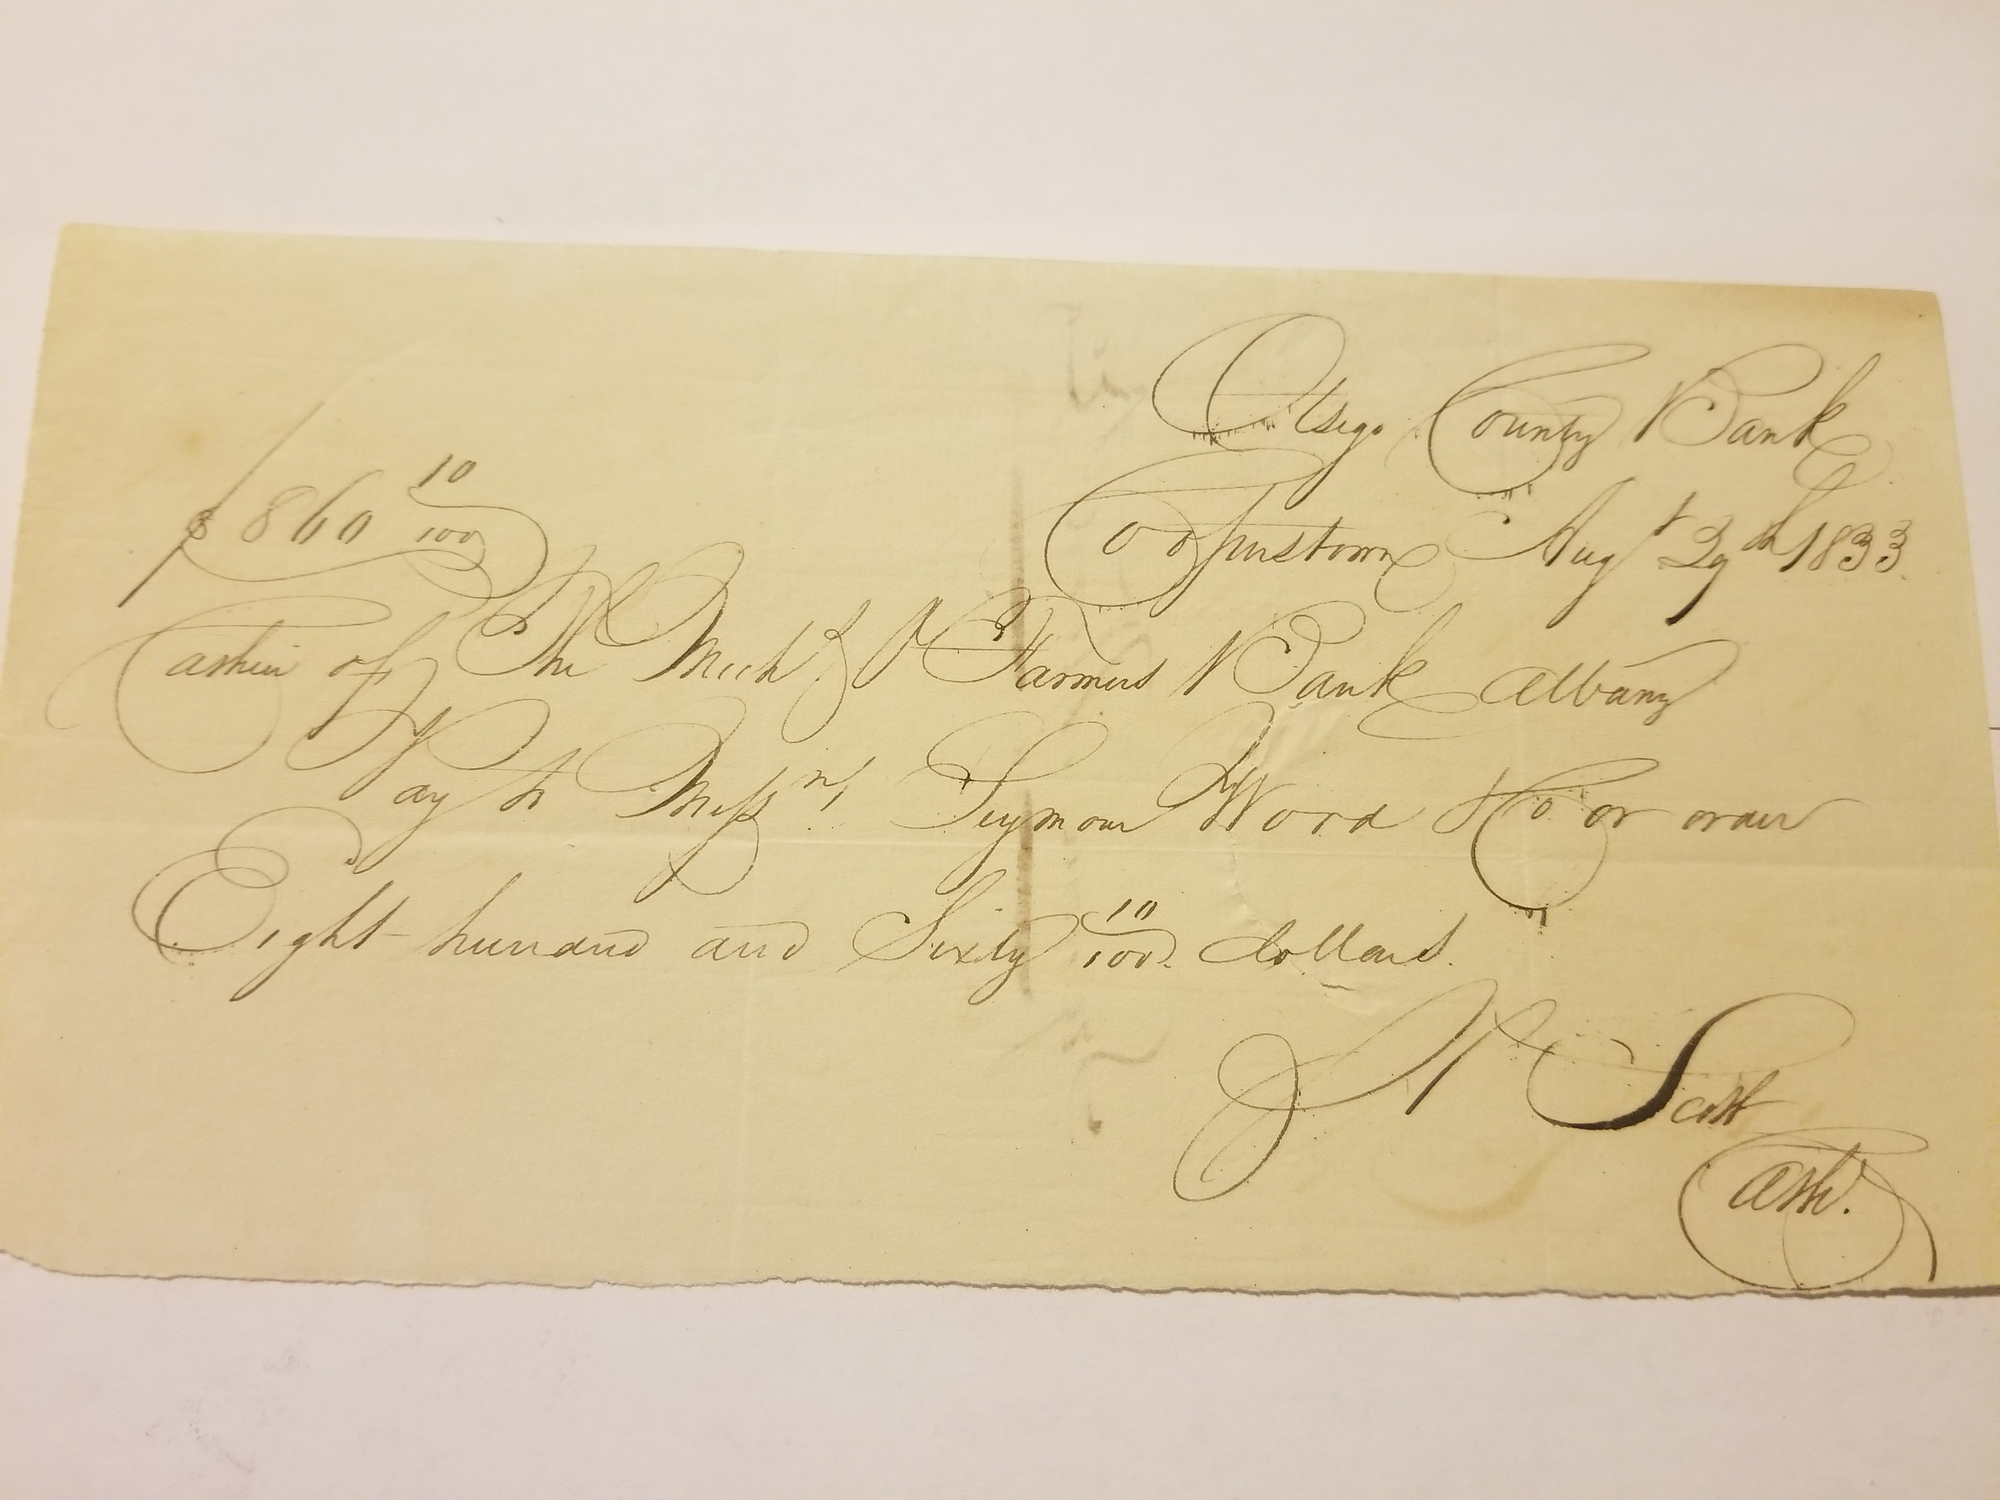 Otsego County Bank
$860 10/100 Cooperstown Augt 29th 1833
Cashier of The Mech & Farmers Bank Albany
Pay to Messrs Seymour Wood & Co or order
Eight hundred and Sixty 10/100 dollars.
H Scott
Cashr.